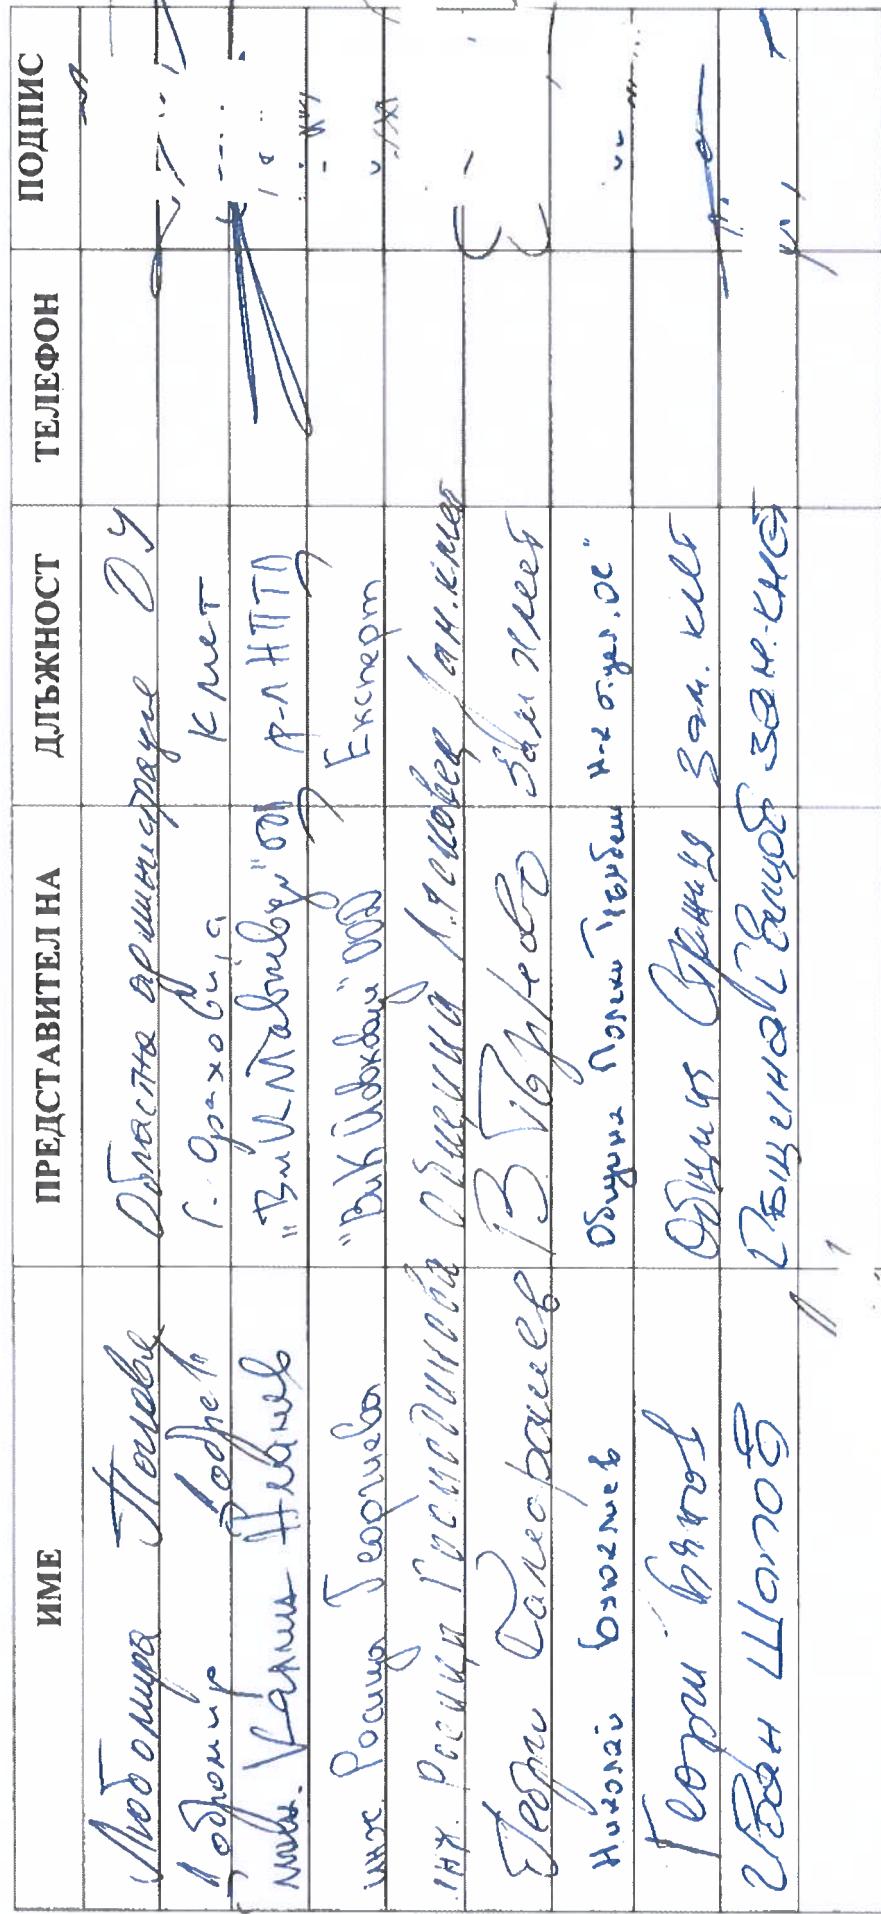 ИМЕ ПРЕДСТАВИТЕЛ НА ДЛЪЖНОСТ ТЕЛЕФОН ПОДПИС
Любомира Попова Областна администрация ОУ
Добромир Добрев Г. Оряховица Кмет
инж. "ВиК Йовковци" ОО р-л НПТО
инж. Росица Георгиева "ВиК Йовковци" ООД Експерт
инж. Росица Господинова община Лясковец зам. кмет
Георги Камарашев В. Търново Зам. кмет
Николай Община Полски Тръмбеш Н-к отдел "ОС"
Георги Вачков Община Стражица Зам. кмет
Иван Шопов Община Свищов зам.-кмет